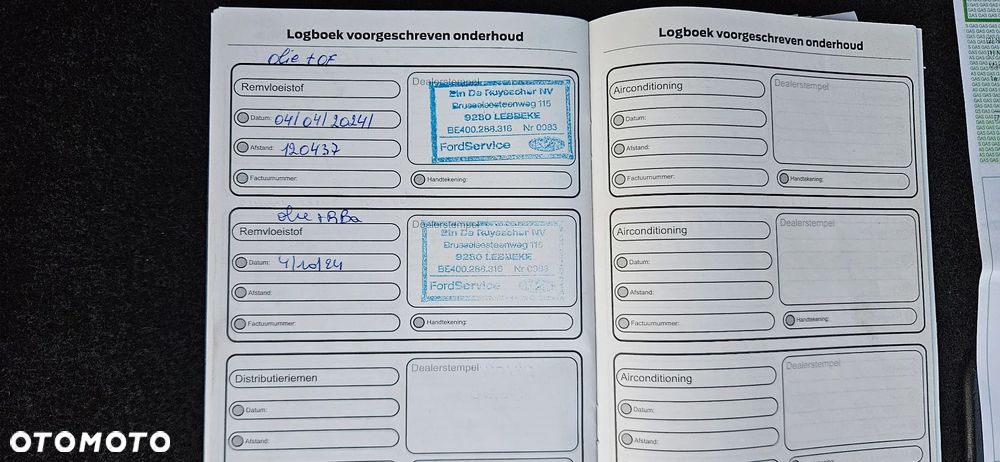 Logboek voorgeschreven onderhoud
olie + OF
Remvloeistof
Datum: 04/04/2024/
Afstand: 120437
Factuurnummer:
Dealerstempel
De Ruysscher NV
Brusselsesteenweg 115
9280 LEBBEKE
BE400.288.316 Nr 0983
FordService
Handtekening:
olie +
Remvloeistof
Datum: 4/10/24
Afstand:
Factuurnummer:
Dealerstempel
De Ruysscher NV
Brusselsesteenweg 115
9280 LEBBEKE
BE400.288.316 Nr 0983
FordService
Handtekening:
Distributieriemen
Datum:
Afstand:
Dealerstempel
Logboek voorgeschreven onderhoud
Airconditioning
Datum:
Afstand:
Factuurnummer:
Dealerstempel
Handtekening:
Airconditioning
Datum:
Afstand:
Factuurnummer:
Dealerstempel
Handtekening:
Airconditioning
Datum:
Afstand:
Dealerstempel
OTOMOTO